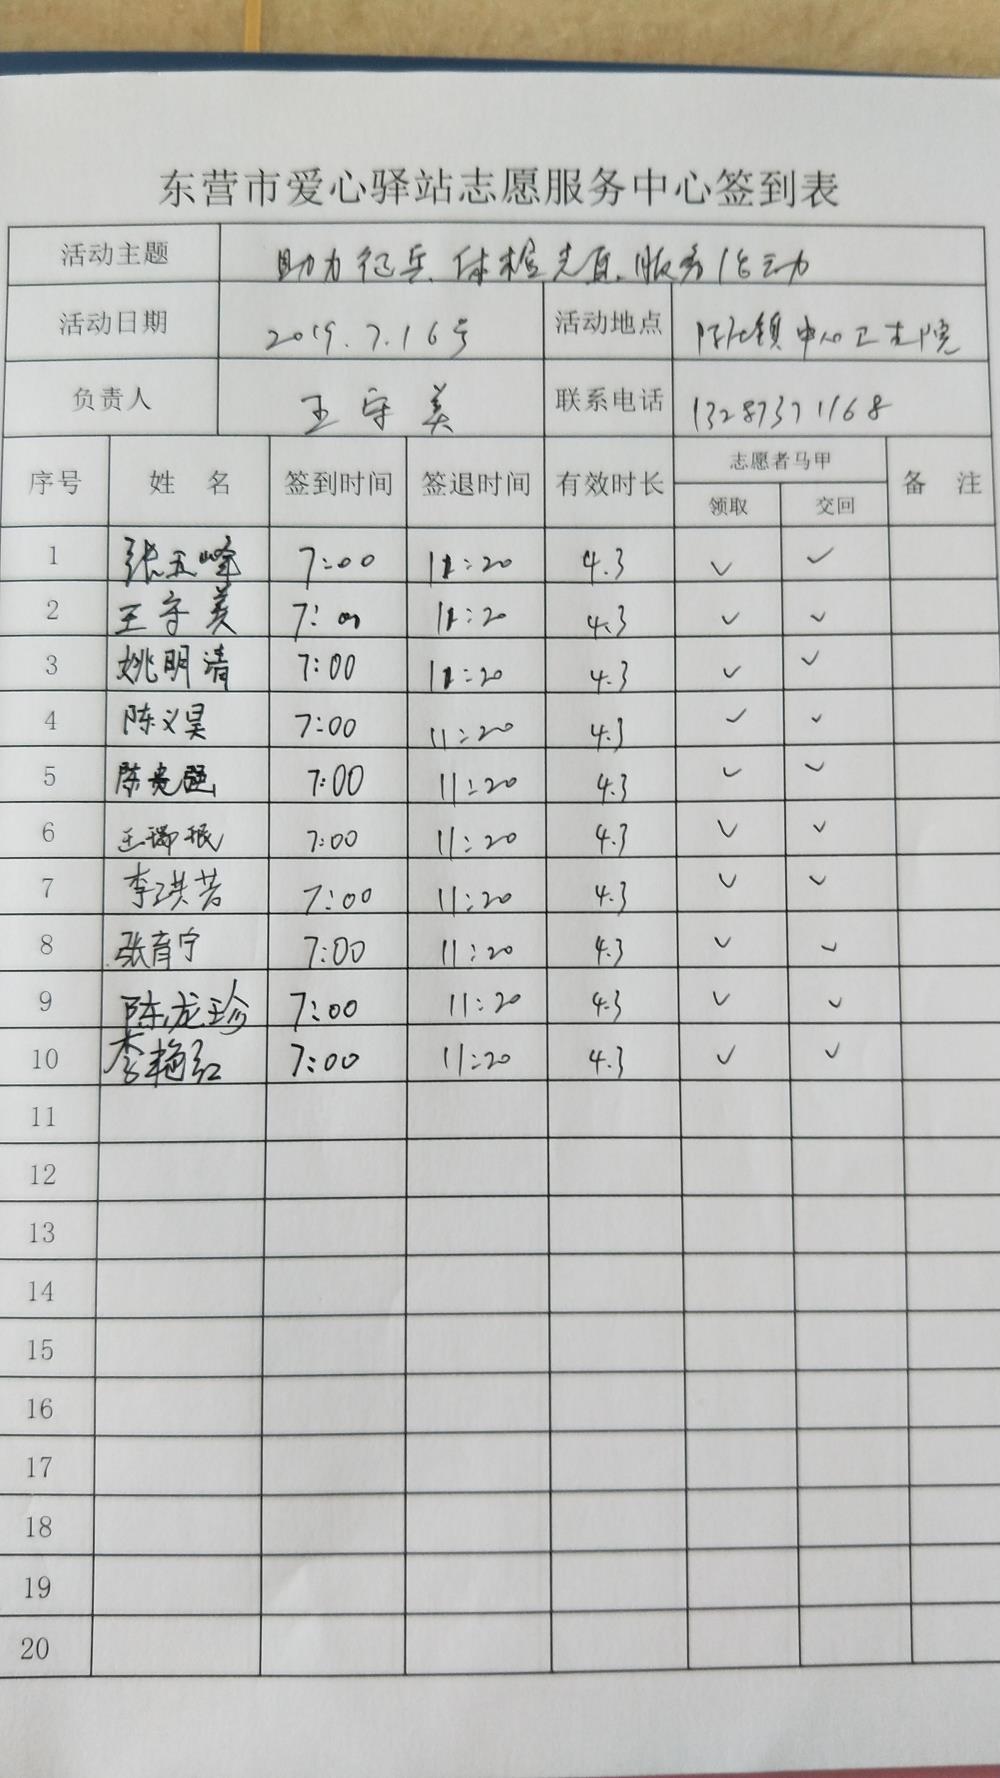 东营市爱心驿站志愿服务中心签到表
活动主题 助力征兵体检志愿服务活动
活动日期 2019.7.16号 活动地点 陈庄镇中心卫生院
负责人 王守美 联系电话 13287371168
序号 姓名 签到时间 签退时间 有效时长 志愿者马甲 备注
领取 交回
1 张五峰 7:00 11:20 4.3 ✓ ✓
2 王守美 7:00 11:20 4.3 ✓ ✓
3 姚明清 7:00 11:20 4.3 ✓ ✓
4 陈义昊 7:00 11:20 4.3 ✓ ✓
5 陈 7:00 11:20 4.3 ✓ ✓
6 王瑞珉 7:00 11:20 4.3 ✓ ✓
7 李洪芳 7:00 11:20 4.3 ✓ ✓
8 张育宁 7:00 11:20 4.3 ✓ ✓
9 陈龙珍 7:00 11:20 4.3 ✓ ✓
10 李艳红 7:00 11:20 4.3 ✓ ✓
11
12
13
14
15
16
17
18
19
20